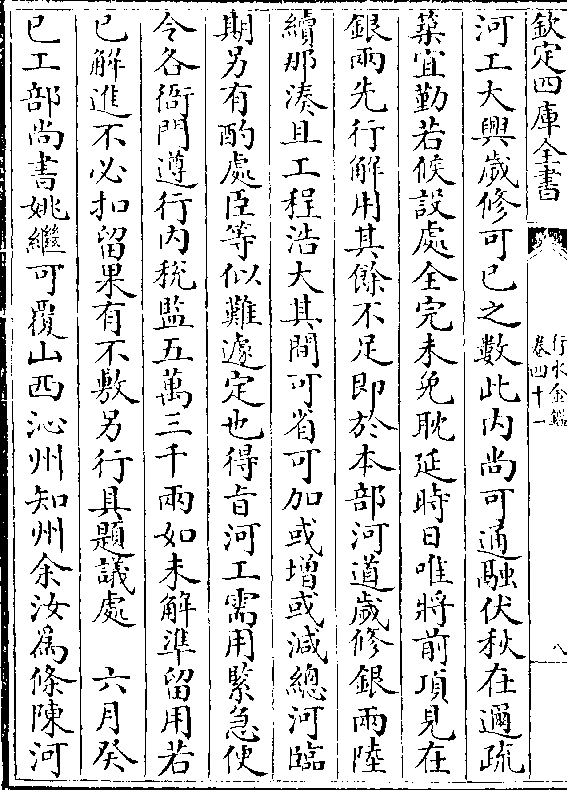 欽定四庫全書
行水金鑑
卷四十一
八
河工大興歲修可已之數此内尚可通融伏秋在邇疏
築宜勤若候設處全完未免耽延時日唯將前項見在
銀兩先行解用其餘不足即於本部河道歲修銀兩陸
續那湊且工程浩大其間可省可加或增或減總河臨
期另有酌處臣等似難遽定也得旨河工需用緊急便
令各衙門遵行内稅監五萬三千兩如未解準留用若
已解進不必扣留果有不敷另行具題議處　六月癸
巳工部尚書姚繼可覆山西沁州知州余汝為條陳河